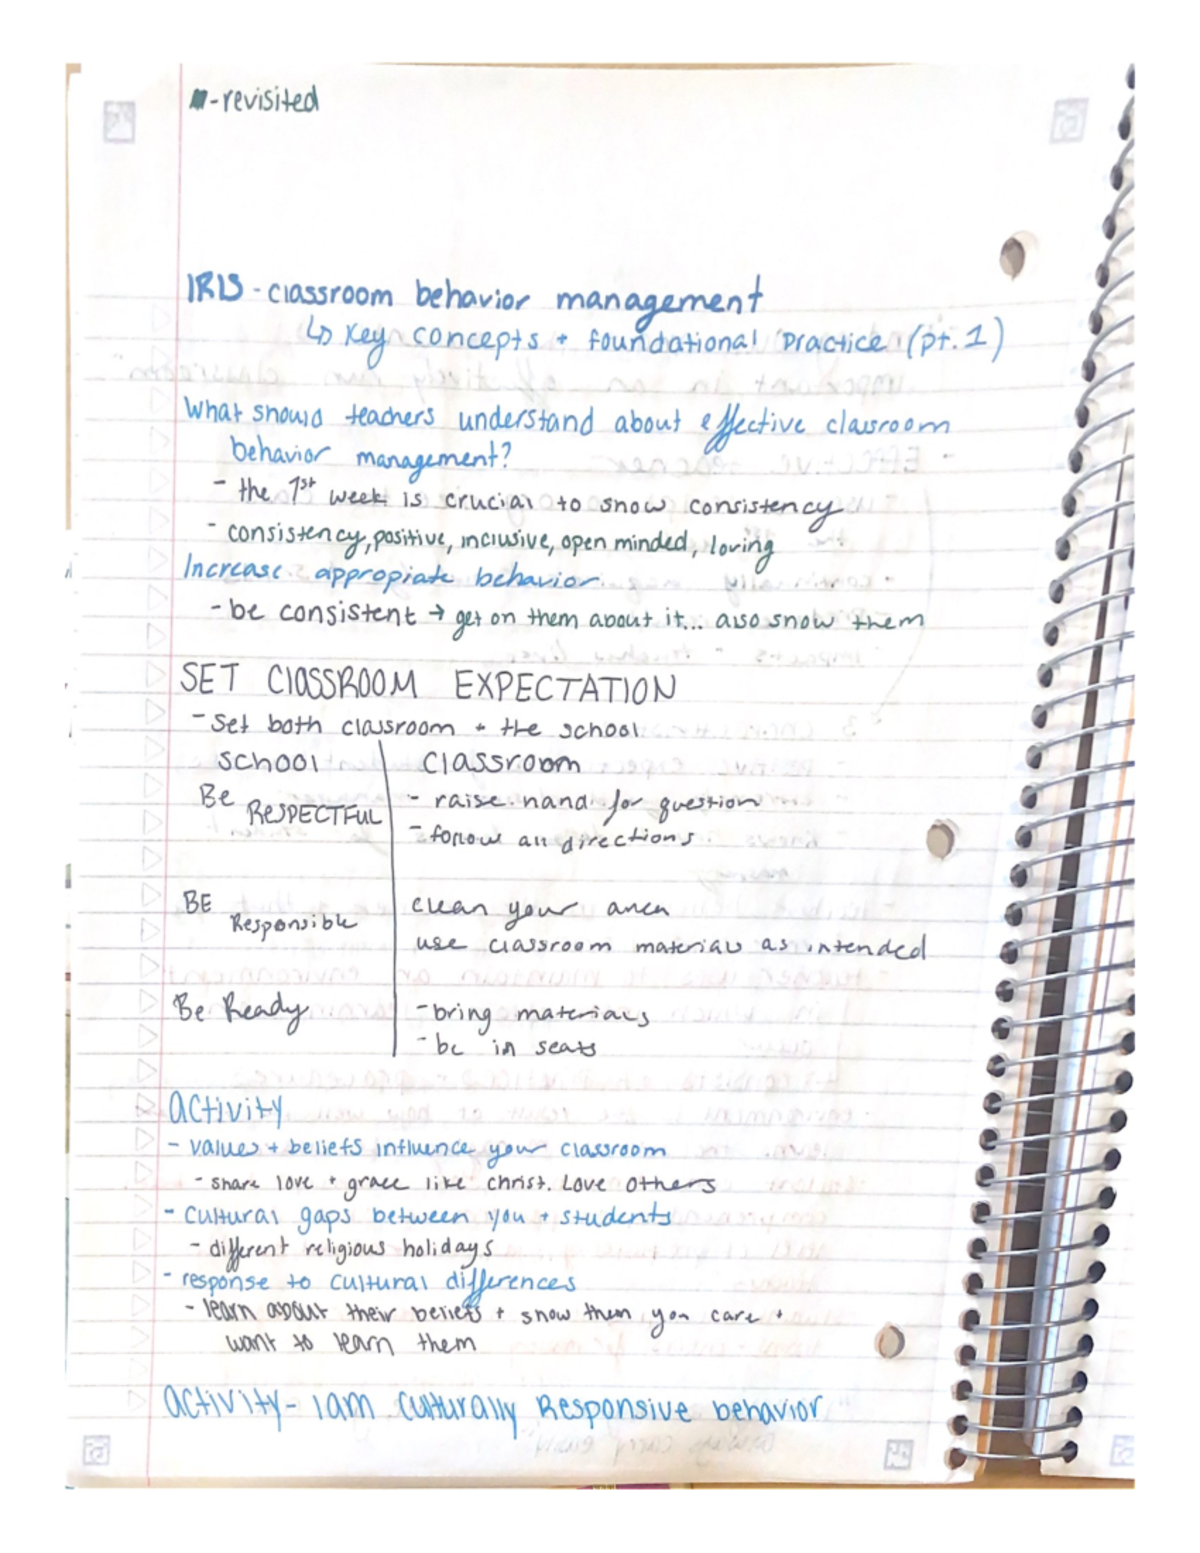 -revisited
IRIS - classroom behavior management
↳ Key concepts + foundational Practice (pt. 1)
What should teachers understand about effective classroom
behavior management?
- the 1st week is crucial to show consistency
- consistency, positive, inclusive, open minded, loving
Increase appropiate behavior
- be consistent → get on them about it... also show them
SET CLASSROOM EXPECTATION
- Set both classroom + the school
SCHOOL | Classroom
Be RESPECTFUL | - raise hand for question
- follow all directions
BE Responsible | clean your area
use classroom materials as intended
Be Ready | - bring materials
- be in seats
activity
- values + beliefs influence your classroom
- share love + grace like christ. Love others
- cultural gaps between you + students
- different religious holidays
- response to cultural differences
- learn about their beliefs + show them you care +
want to learn them
activity - I am Culturally Responsive behavior